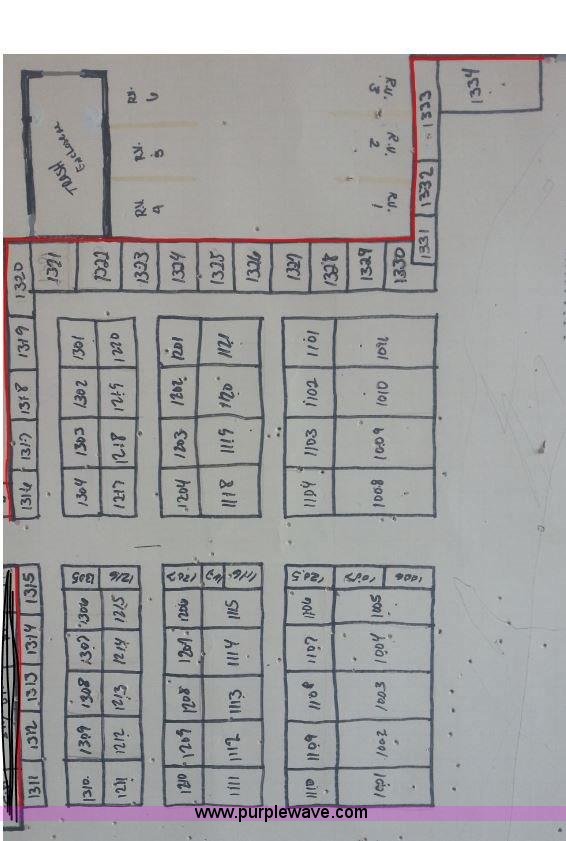 TRASH
Enclosure
RV.
6
RV.
5
RV
4
R.V.
3
R.V.
2
RV.
1
1334
1333
1332
1331
1320
1321
1322
1323
1324
1325
1326
1327
1328
1329
1330
1319
1318
1317
1316
1301
1220
1302
1219
1303
1218
1304
1217
1201
1121
1202
1120
1203
1119
1204
1118
1101
1102
1010
1103
1009
1104
1008
1315
1314
1313
1312
1311
1305
1216
1306
1215
1307
1214
1308
1213
1309
1212
1310
1211
1206
1115
1207
1114
1208
1113
1209
1112
1210
1111
1006
1106
1005
1107
1004
1108
1003
1109
1002
1110
1001
www.purplewave.com